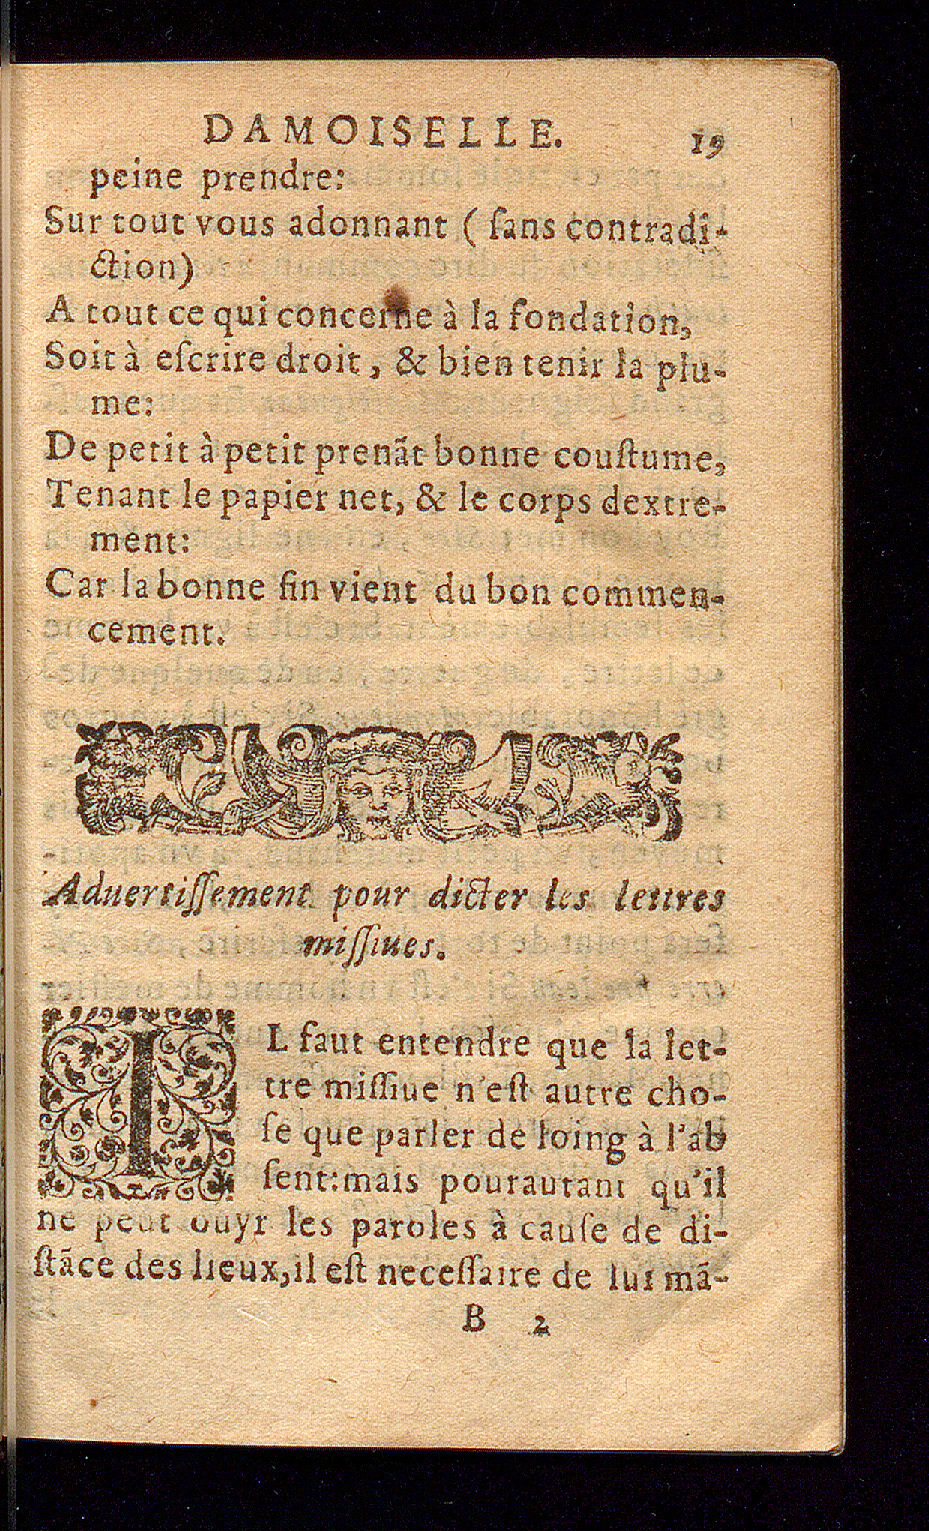 DAMOISELLE. 19
peine prendre:
Sur tout vous adonnant ( ſans contradi-
ction)
A tout ce qui concerne à la fondation,
Soit à eſcrire droit, & bien tenir la plu-
me:
De petit à petit prenãt bonne couſtume,
Tenant le papier net, & le corps dextre-
ment:
Car la bonne fin vient du bon commen-
cement.
Aduertiſſement pour dicter les lettres
miſſiues.
IL faut entendre que la let-
tre miſſiue n'eſt autre cho-
ſe que parler de loing à l'ab
ſent: mais pourautant qu'il
ne peut ouyr les paroles à cauſe de di-
ſtãce des lieux, il eſt neceſſaire de lui mã-
B 2